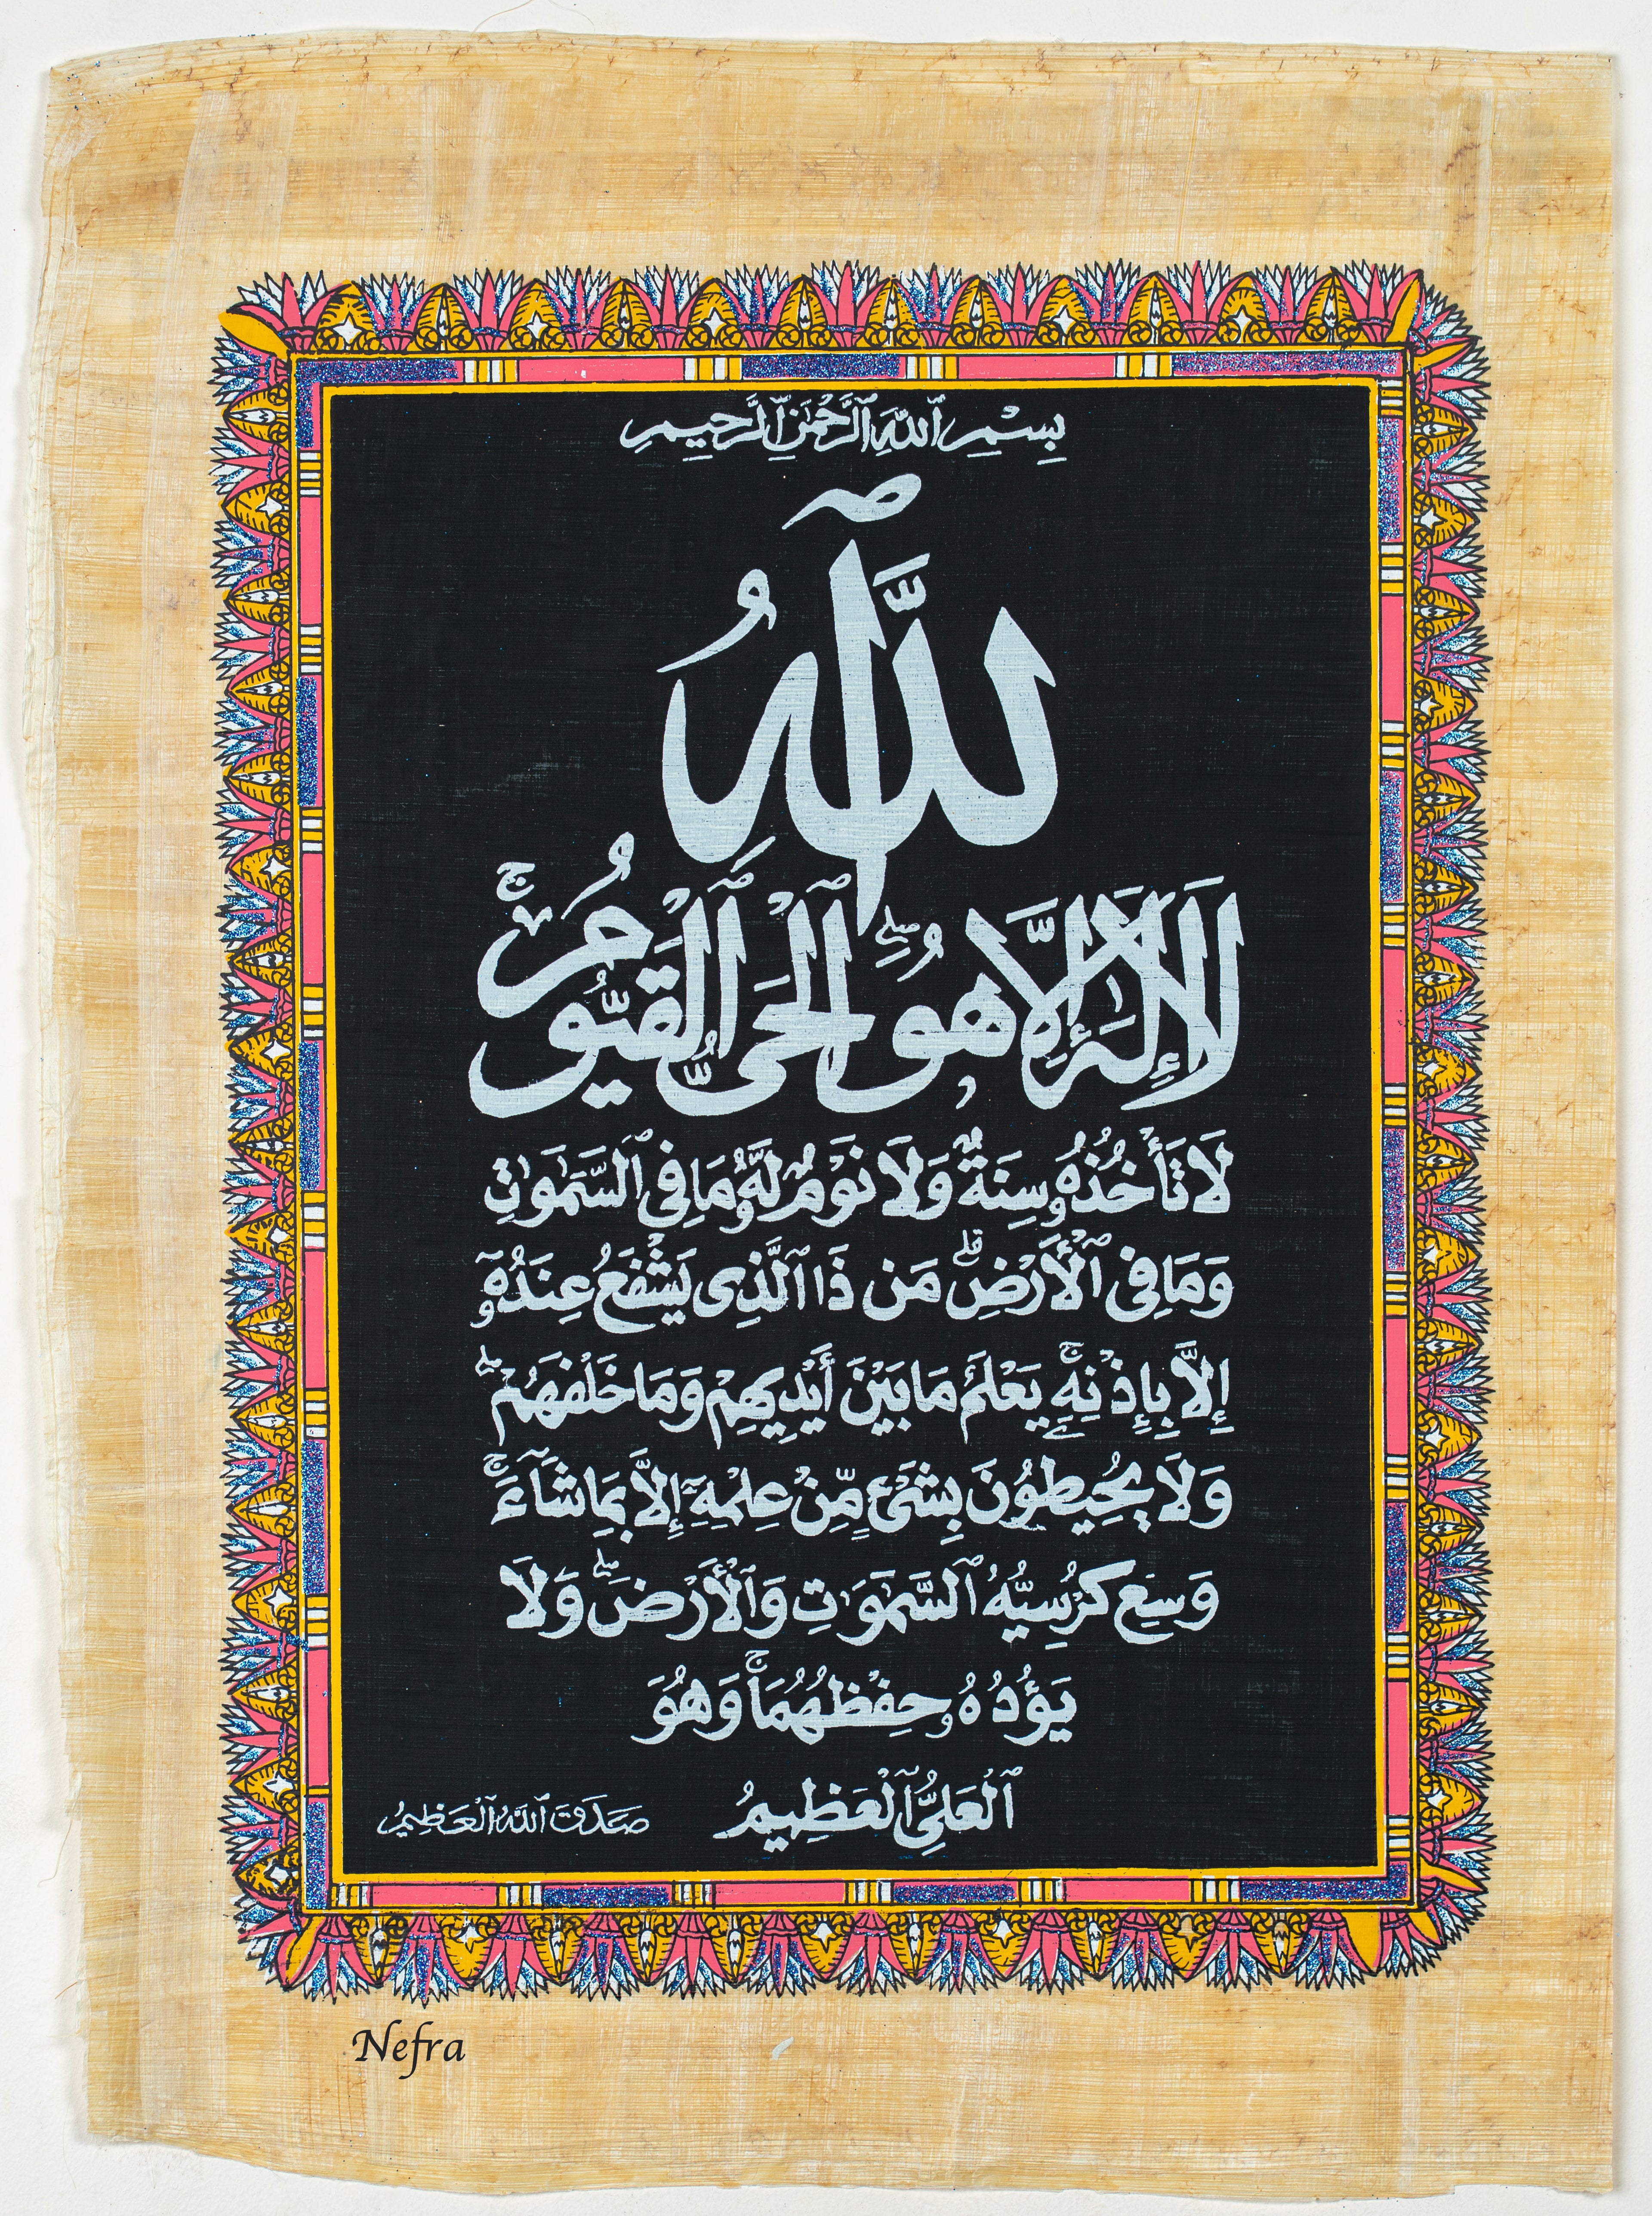 بِسْمِ ٱللَّهِ ٱلرَّحْمَٰنِ ٱلرَّحِيمِ
ٱللَّهُ
لَآ إِلَٰهَ إِلَّا هُوَ ٱلْحَىُّ ٱلْقَيُّومُ ۚ
لَا تَأْخُذُهُۥ سِنَةٌ وَلَا نَوْمٌ لَّهُۥ مَا فِى ٱلسَّمَٰوَٰتِ
وَمَا فِى ٱلْأَرْضِ ۗ مَن ذَا ٱلَّذِى يَشْفَعُ عِندَهُۥٓ
إِلَّا بِإِذْنِهِۦ ۚ يَعْلَمُ مَا بَيْنَ أَيْدِيهِمْ وَمَا خَلْفَهُمْ ۖ
وَلَا يُحِيطُونَ بِشَىْءٍ مِّنْ عِلْمِهِۦٓ إِلَّا بِمَا شَآءَ ۚ
وَسِعَ كُرْسِيُّهُ ٱلسَّمَٰوَٰتِ وَٱلْأَرْضَ ۖ وَلَا
يَـُٔودُهُۥ حِفْظُهُمَا ۚ وَهُوَ
ٱلْعَلِىُّ ٱلْعَظِيمُ
صَدَقَ ٱللَّهُ ٱلْعَظِيمُ
Nefra